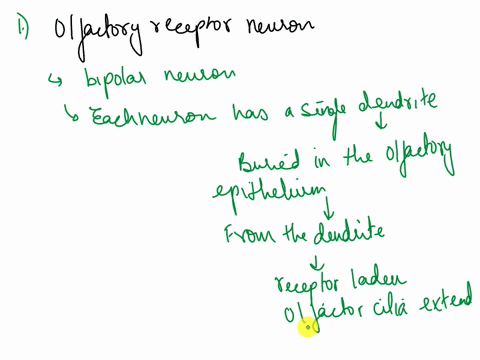 1) Olfactory receptor neuron
↳ bipolar neuron
↳ Each neuron has a single dendrite
↓
Buried in the Olfactory
epithelium
↓
From the dendrite
↓
receptor laden
Olfactor cilia extend